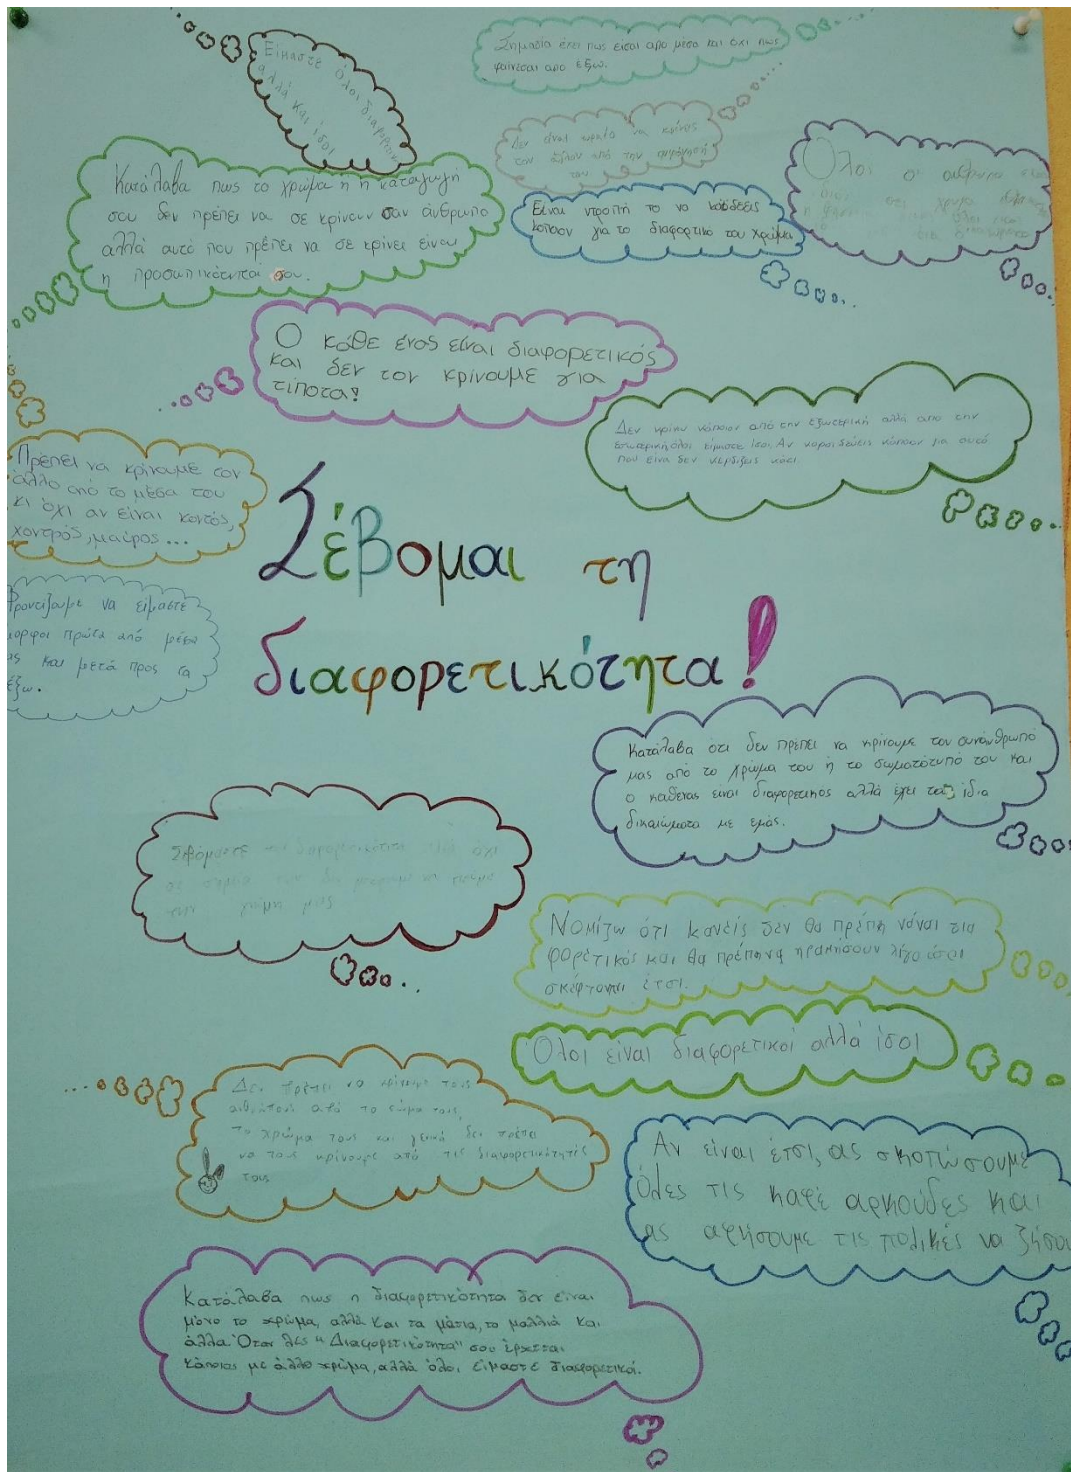 Είμαστε Όλοι διαφορετικοί
αλλά και ίσοι
Σημασία έχει πως είσαι από μέσα και όχι πως
φαίνεσαι απο έξω.
Δεν είναι ωραίο να κρίνεις
τον άλλον από την εμφάνισή
του
Κατάλαβα πως το χρώμα η η καταγωγή
σου δεν πρέπει να σε κρίνουν σαν άνθρωπο
αλλά αυτό που πρέπει να σε κρίνει είναι
η προσωπικότητα σου.
Είναι ντροπή το να κοϊδεύεις
κάποιον για το διαφορτικό του χρώμα
Όλοι οι
χρώμα
όλοι
δικαιώματα
Ο κάθε ένας είναι διαφορετικός
και δεν τον κρίνουμε για
τίποτα!
Δεν κρίνω κάποιον από την εξωτερική αλλά απο την
εσωτερική όλοι είμαστε ίσοι. Αν κοροιδεύεις κάποιον για αυτό
που είναι δεν κερδίζεις κάτι.
Πρέπει να κρίνουμε τον
άλλο από το μέσα του
κι όχι αν είναι κοντός,
χοντρός, μαύρος...
Φροντίζουμε να είμαστε
μορφοι πρώτα από μέσα
ας και μετά προς τα
έξω.
Σέβομαι τη
διαφορετικότητα!
Κατάλαβα ότι δεν πρέπει να κρίνουμε τον συνάνθρωπό
μας από το χρώμα του ή το σωματότυπό του και
ο καθένας είναι διαφορετικος αλλά έχει τα ίδια
δικαιώματα με εμάς.
Σεβόμαστε την διαφορετικότητα αλλά όχι
σε σημείο που δεν μπορουμε να πουμε
την γνώμη μας
Νομίζω ότι κανείς δεν θα πρέπη νάναι δια
φορετικός και θα πρέπηνα ηρεμήσουν λίγο όσοι
σκέφτονται έτσι.
Όλοι είναι διαφορετικοί αλλά ίσοι
Δεν πρέπει να κρίνουμε τους
ανθρώπους από το σώμα τους,
το χρώμα τους και γενικά δεν πρέπει
να τους κρίνουμε από τις διαφορετικότητές
τους
Αν είναι έτσι, ας σκοτώσουμε
όλες τις καφέ αρκούδες και
ας αφήσουμε τις πολικές να ζήσου
Κατάλαβα πως η διαφορετικότητα δεν είναι
μόνο το χρώμα, αλλά και τα μάτια, το μαλλιά και
άλλα. Όταν λες "Διαφορετικότητα" σου έρχεται
κάποιος με άλλο χρώμα, αλλά όλοι είμαστε διαφορετικοί.